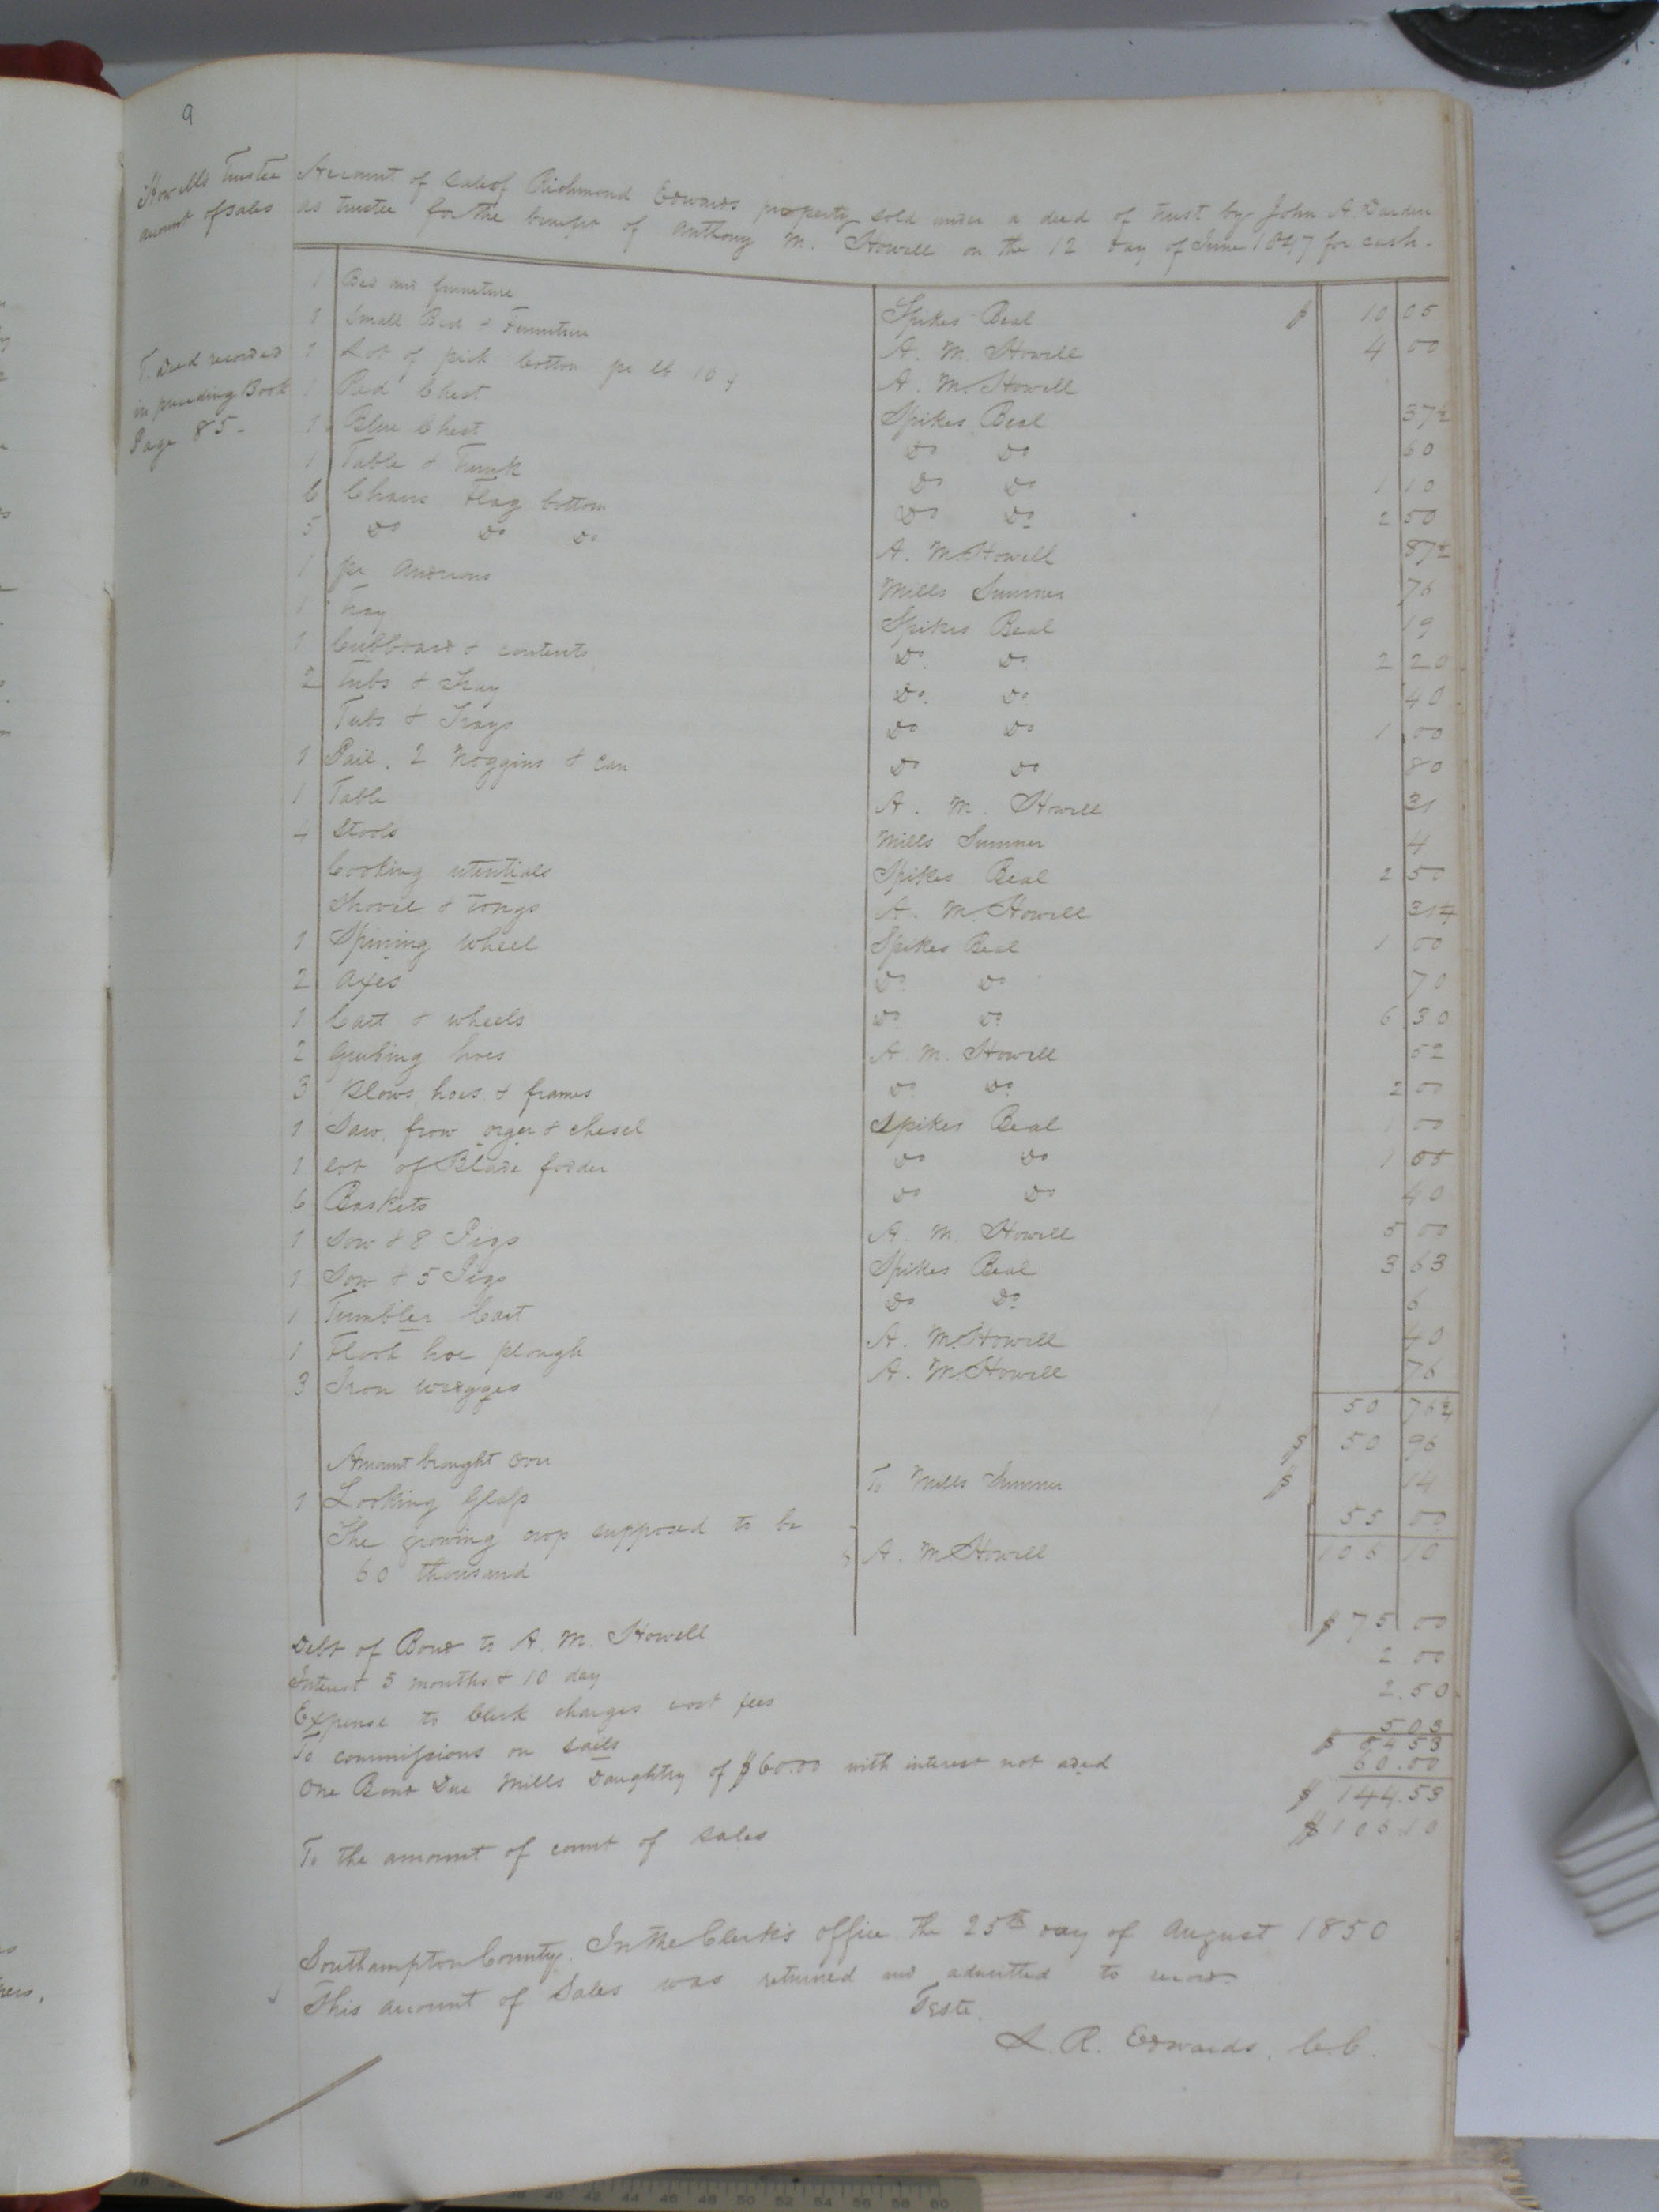 9
Howells Trustee
amount of sales
Account of Sale of Richmond Edwards property sold under a deed of trust by John A Darden
as trustee for the benefit of Anthony M. Howell on the 12 day of June 1847 for cash.
T. Deed recorded
in preceding Book
Page 85.
1 Bed and furniture Spikes Beal $ 10 05
1 Small Bed & Furniture A. M. Howell 4 00
1 Lot of pick Cotton pr lb 10 ¢ A. M. Howell
1 Red Chest Spikes Beal 37½
1 Blue Chest Do Do 60
1 Table & Trunk Do Do 1 10
6 Chairs Flag bottom Do Do 2 50
5 Do Do Do A. M. Howell 87½
1 pr Andirons Mills Sumner 76
1 Tray Spikes Beal 19
1 Cubboard & contents Do Do 2 20
2 tubs & Tray Do Do 40
Tubs & Trays Do Do 1 00
1 Pail, 2 Noggins & can Do Do 80
1 Table A. M. Howell 31
4 Stools Mills Sumner 4
Cooking utentials Spikes Beal 2 50
Shovel & tongs A. M. Howell 31¼
1 Spining wheel Spikes Beal 1 00
2 Axes Do Do 70
1 Cart & wheels Do Do 6 30
2 Grubing hoes A. M. Howell 52
3 Plows hoes & frames Do Do 2 00
1 Saw, frow orger & chesel Spikes Beal 1 00
1 lot of Blade fodder Do Do 1 05
6 Baskets Do Do 40
1 Sow & 8 Pigs A. M. Howell 5 00
1 Sow & 5 Pigs Spikes Beal 3 63
1 Tumbler Cart Do Do 6
1 Flook hoe plough A. M. Howell 40
3 Iron wregges A. M. Howell 76
50 76¾
Amount brought over $ 50 96
1 Looking Glass To Mills Sumner $ 14
The growing crop supposed to be 55 00
60 thousand A. M. Howell 106 10
Debt of Bond to A. M. Howell $ 75 00
Interest 5 months & 10 day 2 00
Expense to Clerk charges cost fees 2.50
To commissions on sails 5 03
$ 84 53
One Bond Due Mills Daughtry of $60.00 with interest not aded 60.00
$ 144.53
To the amount of count of sales $106.10
Southampton County. In the Clerk's office the 25th day of August 1850
This account of Sales was returned and admitted to record.
Teste.
L. R. Edwards, C.C.